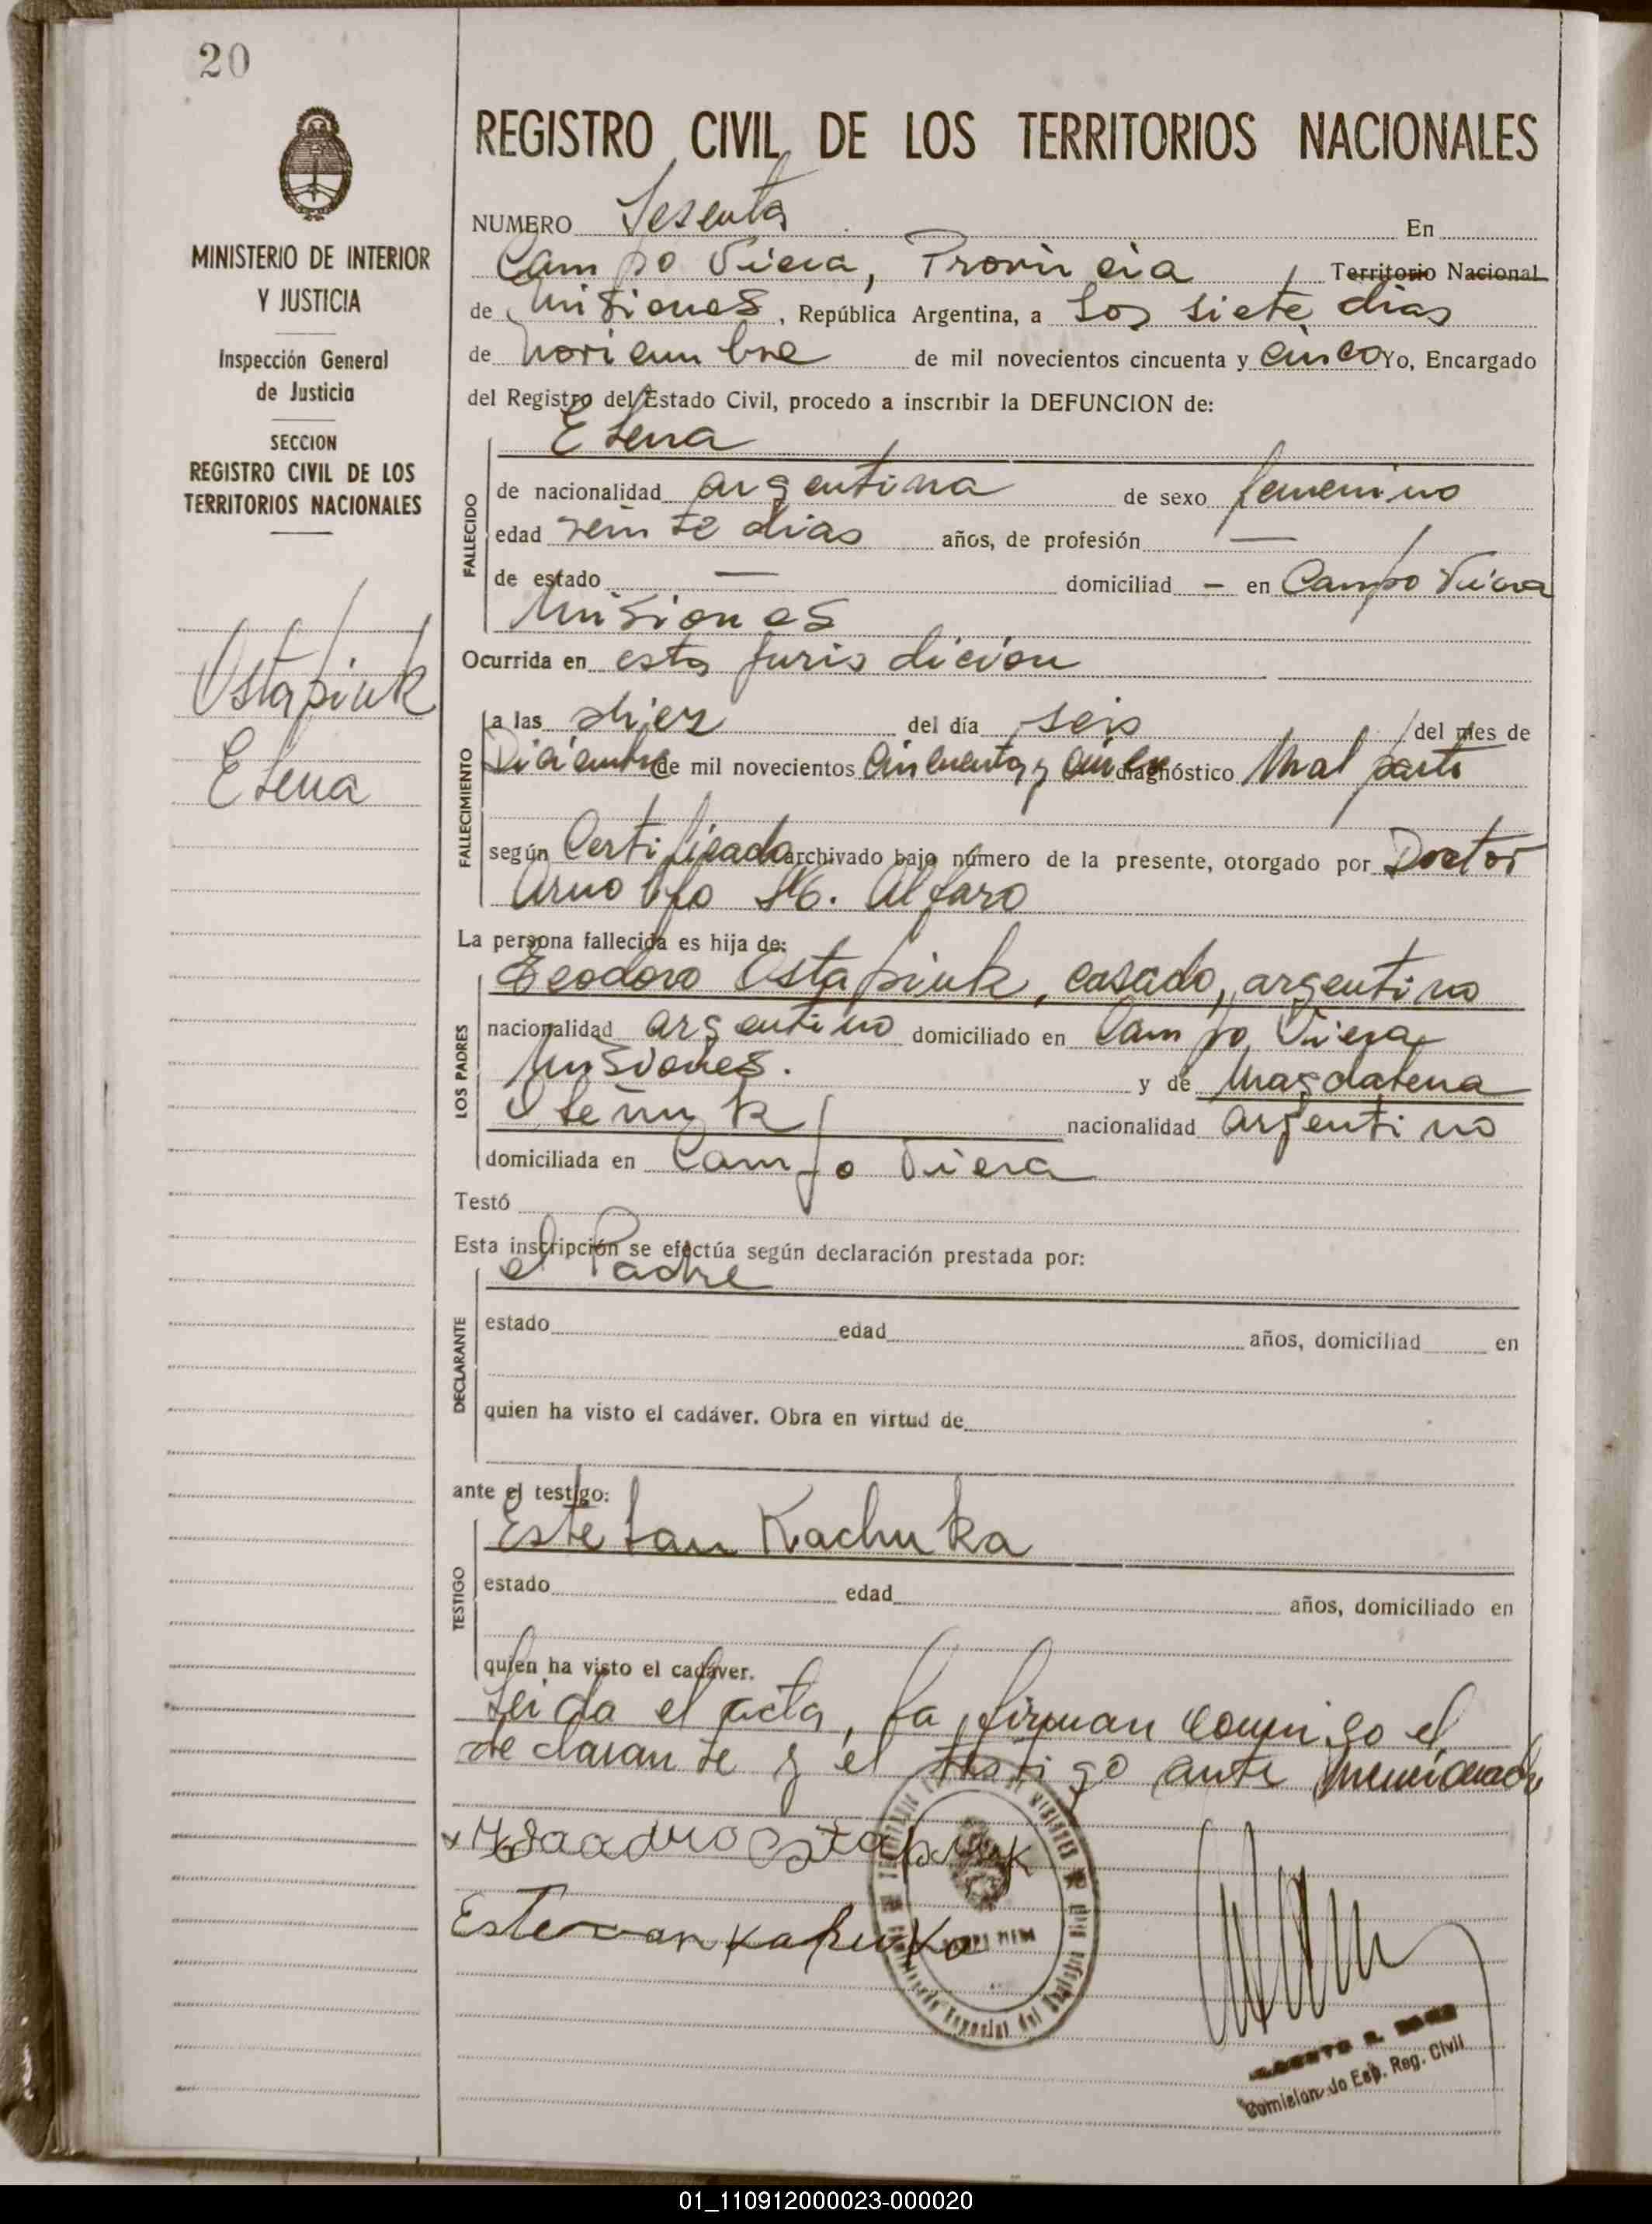 20
REGISTRO CIVIL DE LOS TERRITORIOS NACIONALES
MINISTERIO DE INTERIOR
Y JUSTICIA
Inspección General
de Justicia
SECCION
REGISTRO CIVIL DE LOS
TERRITORIOS NACIONALES
Ostapiuk
Elena
NUMERO Sesenta En
Campo Viera, Provincia Territorio Nacional
de Misiones, República Argentina, a los siete dias
de noviembre de mil novecientos cincuenta y cinco Yo, Encargado
del Registro del Estado Civil, procedo a inscribir la DEFUNCION de:
Elena
FALLECIDO
de nacionalidad argentina de sexo femenino
edad veinte dias años, de profesión —
de estado — domiciliad - en Campo Viera
Misiones
Ocurrida en esta jurisdicion
FALLECIMIENTO
a las diez del día seis del mes de
Diciembre de mil novecientos cincuenta y cinco diagnóstico Mal parto
según Certificado archivado bajo número de la presente, otorgado por Doctor
Arnolfo Alfaro
La persona fallecida es hija de:
LOS PADRES
Teodoro Ostapiuk, casado, argentino
nacionalidad argentino domiciliado en Campo Viera
Misiones. y de Magdalena
nacionalidad argentino
domiciliada en Campo Viera
Testó
Esta inscripción se efectúa según declaración prestada por:
el Padre
DECLARANTE
estado edad años, domiciliad en
quien ha visto el cadáver. Obra en virtud de
ante el testigo:
Esteban Kachuka
TESTIGO
estado edad años, domiciliado en
quien ha visto el cadáver.
Leida el acta, la firman conmigo el
declarante y el testigo ante mencionado
Estevan
Comisionado Esp. Reg. Civil
01_110912000023-000020